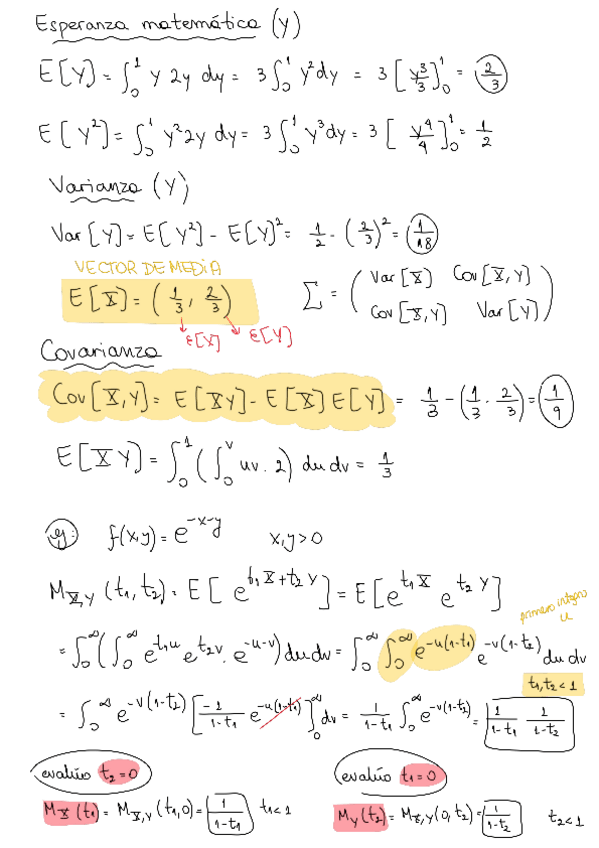 Esperanza matemática (Y)
E[Y] = ∫₀¹ y 2y dy = 3∫₀¹ y² dy = 3[y³/3]₀¹ = 2/3
E[Y²] = ∫₀¹ y² 2y dy = 3∫₀¹ y³ dy = 3[y⁴/4]₀¹ = 1/2
Varianza (Y)
Var[Y] = E[Y²] - E[Y]² = 1/2 - (2/3)² = 1/18
VECTOR DE MEDIA
E[X] = (1/3, 2/3) Σ = (Var[X] Cov[X,Y]
Cov[X,Y] Var[Y])
E[X] E[Y]
Covarianza
Cov[X,Y] = E[XY] - E[X]E[Y] = 1/3 - (1/3 · 2/3) = 1/9
E[XY] = ∫₀¹(∫₀ᵛ uv·2) du dv = 1/3
ej: f(x,y) = e^(-x-y) x,y>0
M_X,Y(t₁,t₂) = E[e^(t₁X+t₂Y)] = E[e^(t₁X) e^(t₂Y)]
primero integro u
= ∫₀^∞(∫₀^∞ e^(t₁u) e^(t₂v) · e^(-u-v)) du dv = ∫₀^∞ ∫₀^∞ e^(-u(1-t₁)) e^(-v(1-t₂)) du dv
t₁,t₂<1
= ∫₀^∞ e^(-v(1-t₂)) [-1/(1-t₁) e^(-u(1-t₁))]₀^∞ dv = 1/(1-t₁) ∫₀^∞ e^(-v(1-t₂)) = 1/(1-t₁) 1/(1-t₂)
evalúo t₂=0 evalúo t₁=0
M_X(t₁) = M_X,Y(t₁,0) = 1/(1-t₁) t₁<1 M_Y(t₂) = M_X,Y(0,t₂) = 1/(1-t₂) t₂<1